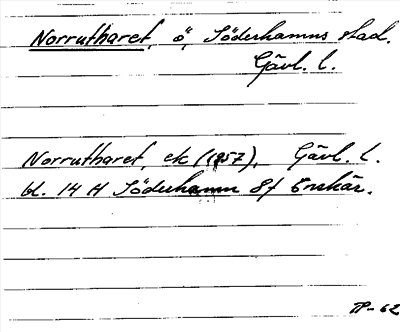 Norrutharet, ö, Söderhamns stad.
Gävl. l.
Norrutharet, ek (1957), Gävl. l.
bl. 14 H Söderhamn 8f Enskär.
-62